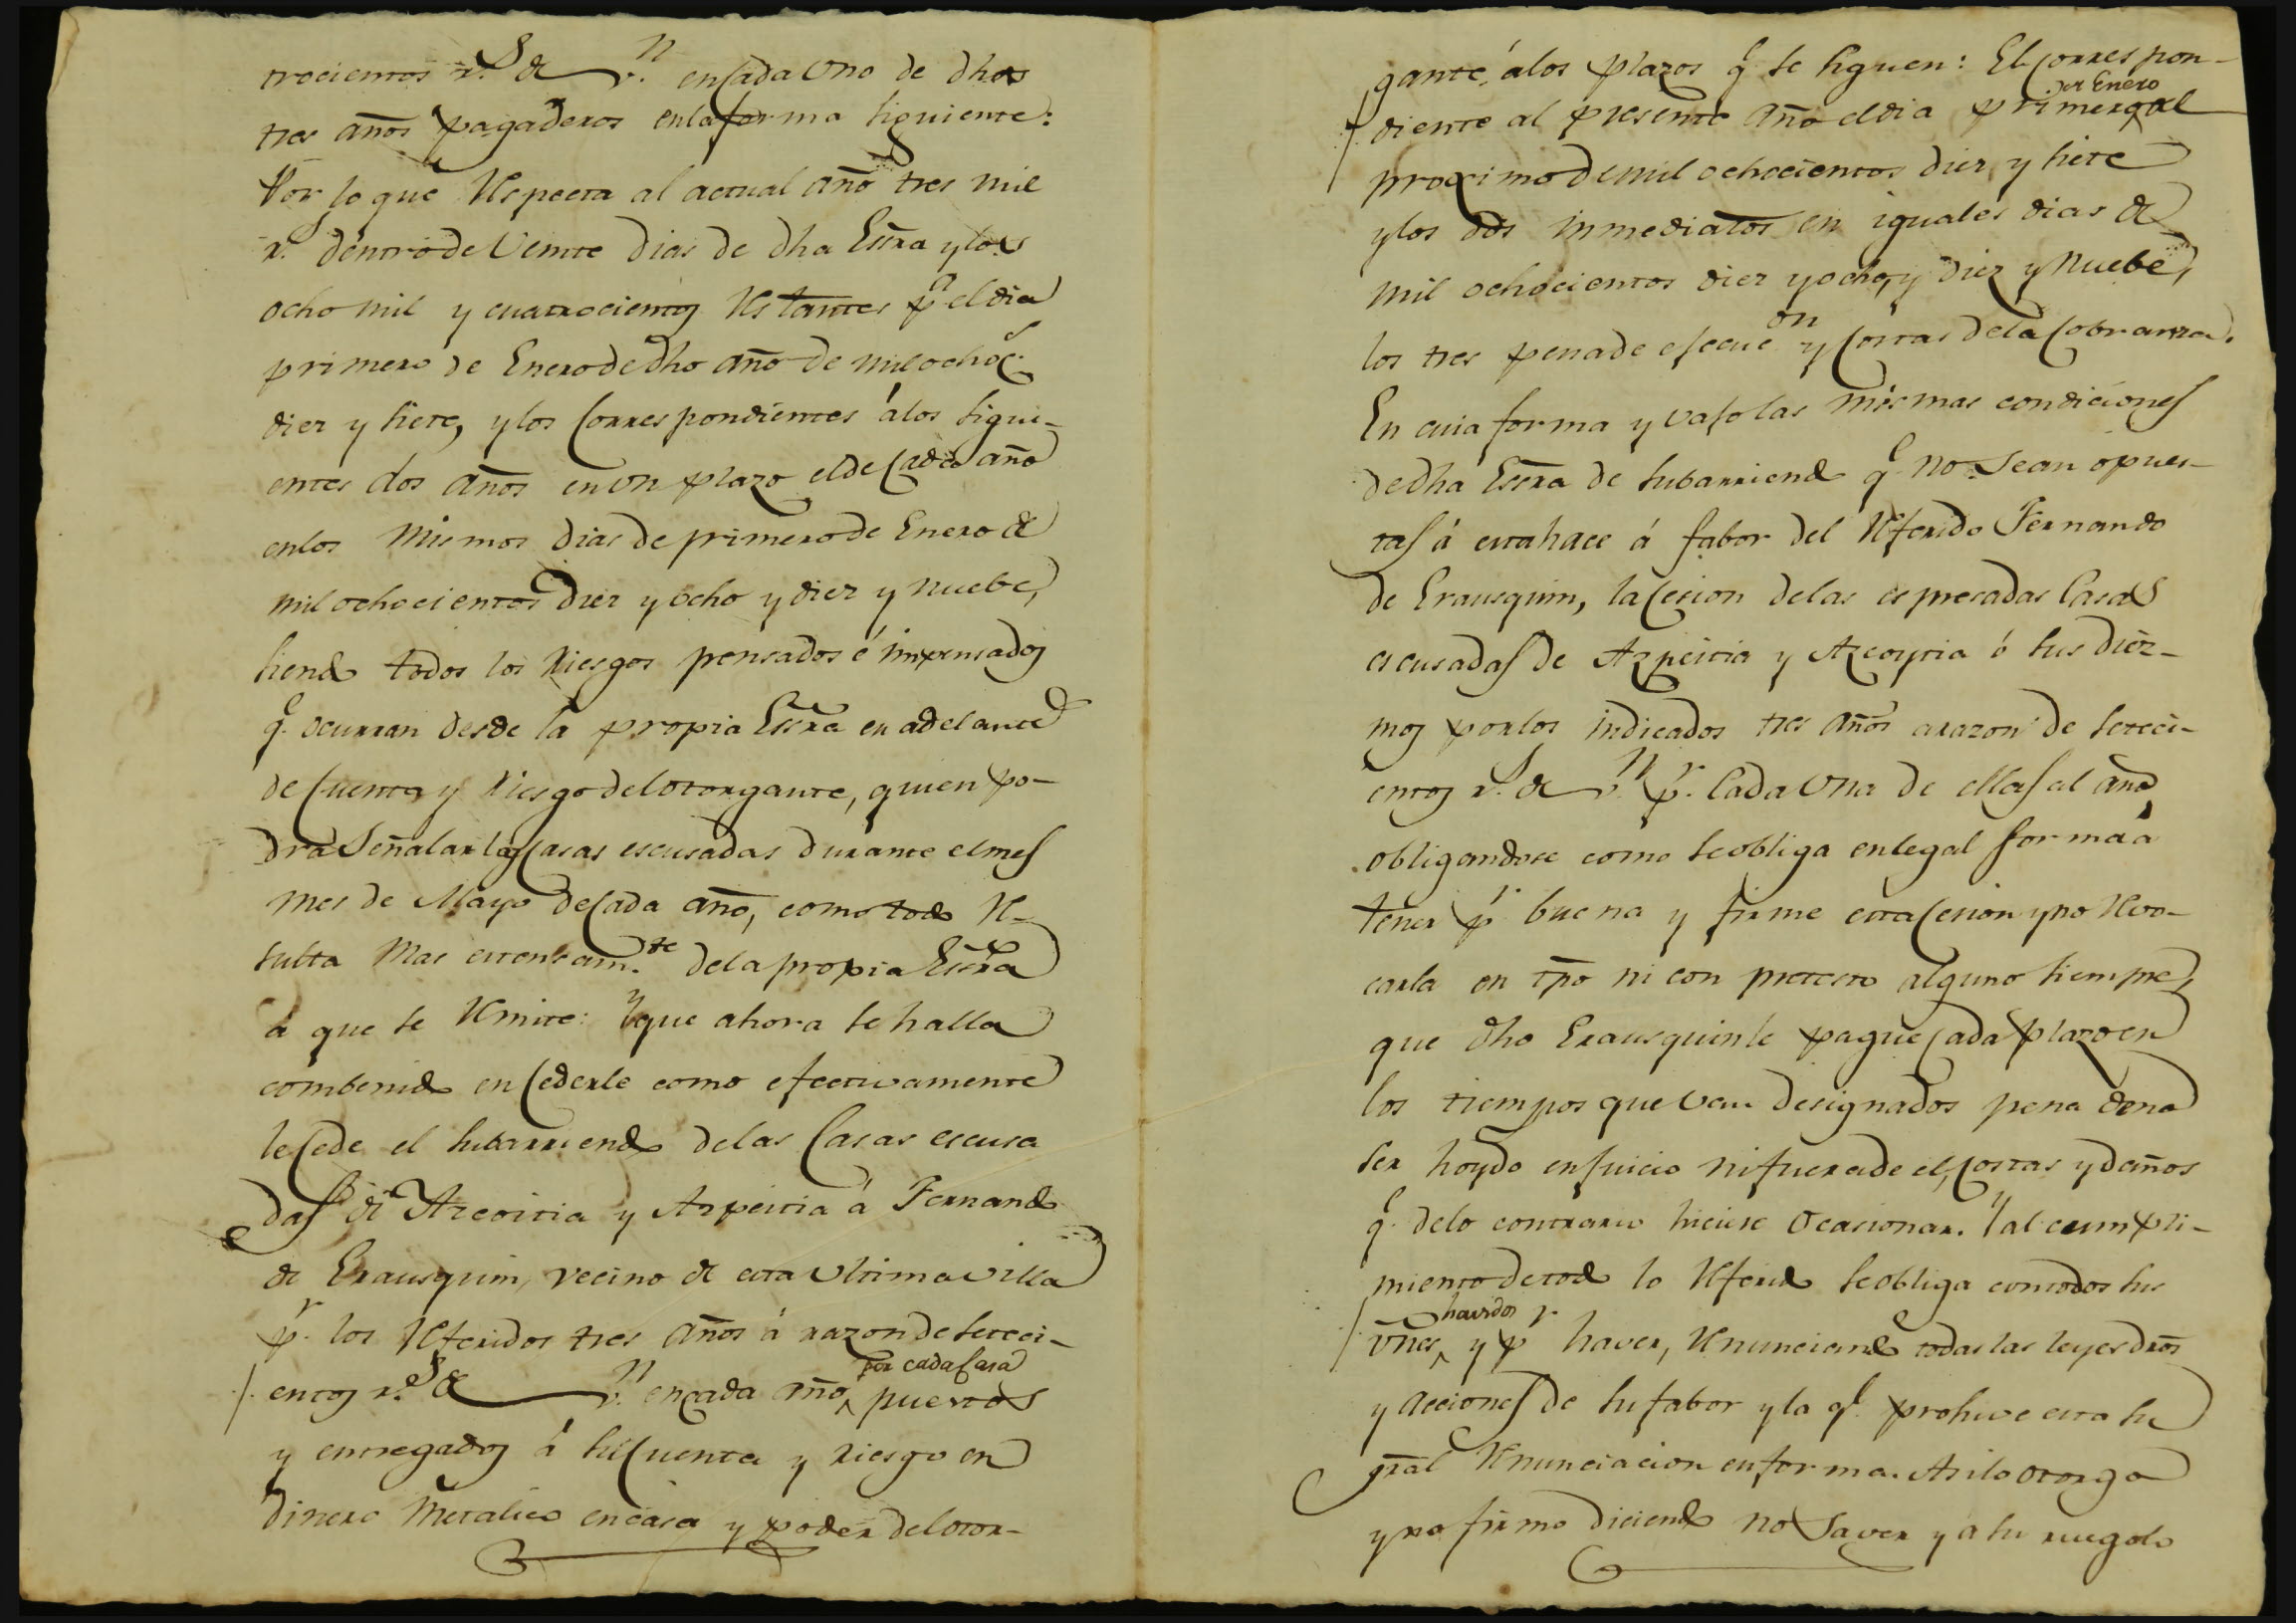 trocientos r.s de v.n en cada uno de dhos
tres años pagaderos en la forma siguiente:
Por lo que respecta al actual año tres mil
r.s dentro de veinte dias de dha Essra y los
ocho mil y cuatrocientos restantes p.a el dia
primero de Enero de dho año de mil ochoc.s
diez y siete, y los correspondientes á los sigui-
entes dos años en un plazo el de cada año
en los mismos dias de primero de Enero de
mil ochocientos diez y ocho y diez y nuebe,
siendo todos los riesgos pensados é impensados
q.e ocurran desde la propia Essra en adelante
de cuenta y riesgo del otorgante, quien po-
drá señalar las casas escusadas durante el mes
mes de Mayo de cada año, como todo re-
sulta mas estensam.te de la propia Essra
á que se remite: Y que ahora se halla
combenido en cederle como efectivamente
le cede el subarriendo de las Casas escusa
das de Azcoitia y Azpeitia á Fernando
de Erausquin, vecino de esta ultima villa
p.r los referidos tres años á razon de seteci-
por cada Casa
entos r.s de v.n en cada año, puestos
y entregados á su cuenta y riesgo en
dinero metalico en casa y poder del otor-
gante, á los plazos q.e se siguen: El correspon-
de Enero
diente al presente año el dia primero del
proximo de mil ochocientos diez y siete
y los dos inmediatos en iguales dias de
mil ochocientos diez y ocho, y diez y nuebe,
los tres pena de esecuc.on y costas de la cobranza.
En cuia forma y vajo las mismas condiciones
de dha Essra de subarriendo q.e no sean opues-
tas á esta hace á fabor del referido Fernando
de Erausquin, la cesion de las espresadas Casas
escusadas de Azpeitia y Azcoytia ó sus diez-
mos por los indicados tres años a razon de seteci-
entos r.s de v.n p.r cada una de ellas al año,
obligandose como se obliga en legal forma á
tener p.r buena y firme esta cesion y no revo-
carla en tpo ni con pretesto alguno siempre,
que dho Erausquin le pague cada plazo en
los tiempos que van designados pena de no
ser hoydo en juicio ni fuera de el, costas y daños
q.e de lo contrario hiciese ocasionar. Y al cumpli-
miento de todo lo referido se obliga con todos sus
havidos
vnes y p.r haver, renunciando todas las leyes dros
y acciones de su fabor y la q.e prohive esta su
gral renunciacion en forma. Asi lo otorga
y no firmo diciendo no saver y a su ruego lo